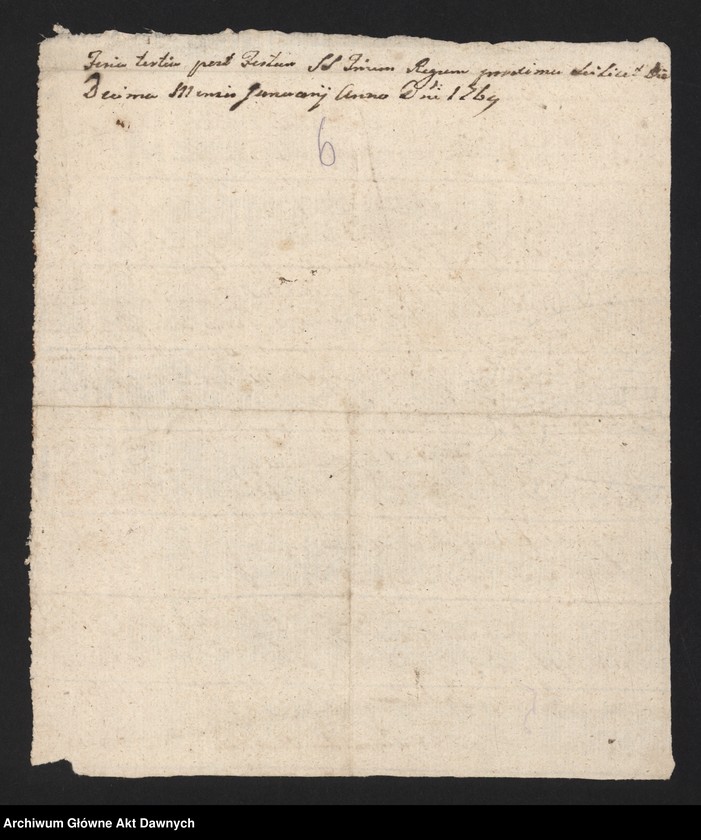 Feria tertia post Festum SS Trium Regum proxima scilicet Die
Decima Mensis Januarij Anno Dni 1769
6
Archiwum Główne Akt Dawnych